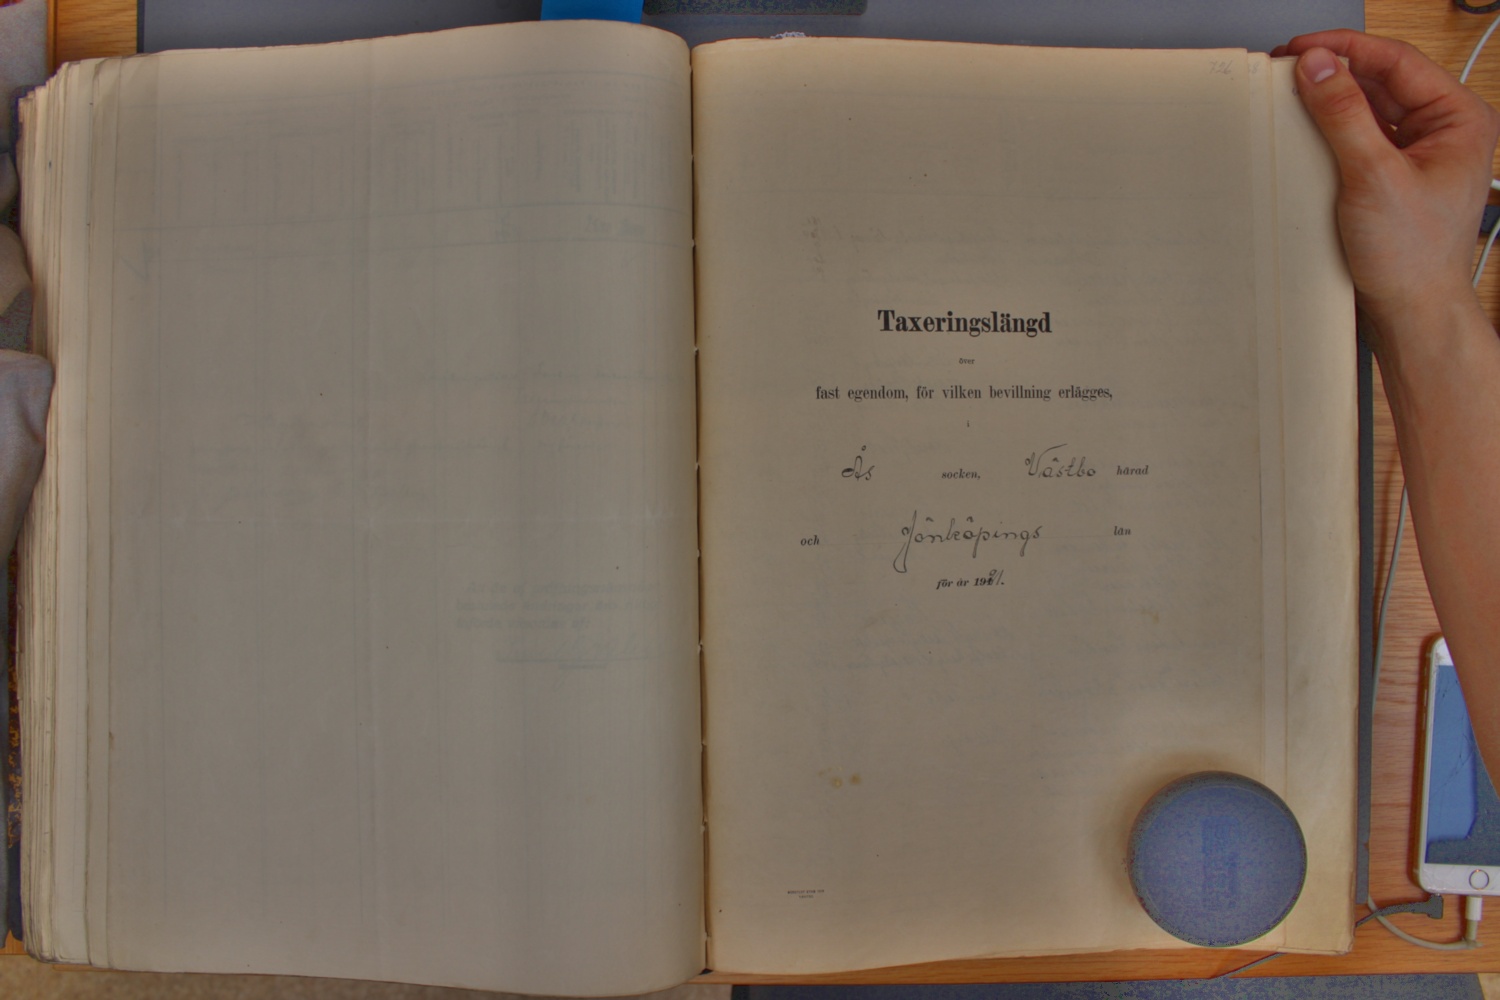 Taxeringslängd
över
fast egendom, för vilken bevillning erlägges,
i
Ås socken, Västbo härad
och Jönköpings län
för år 1921.